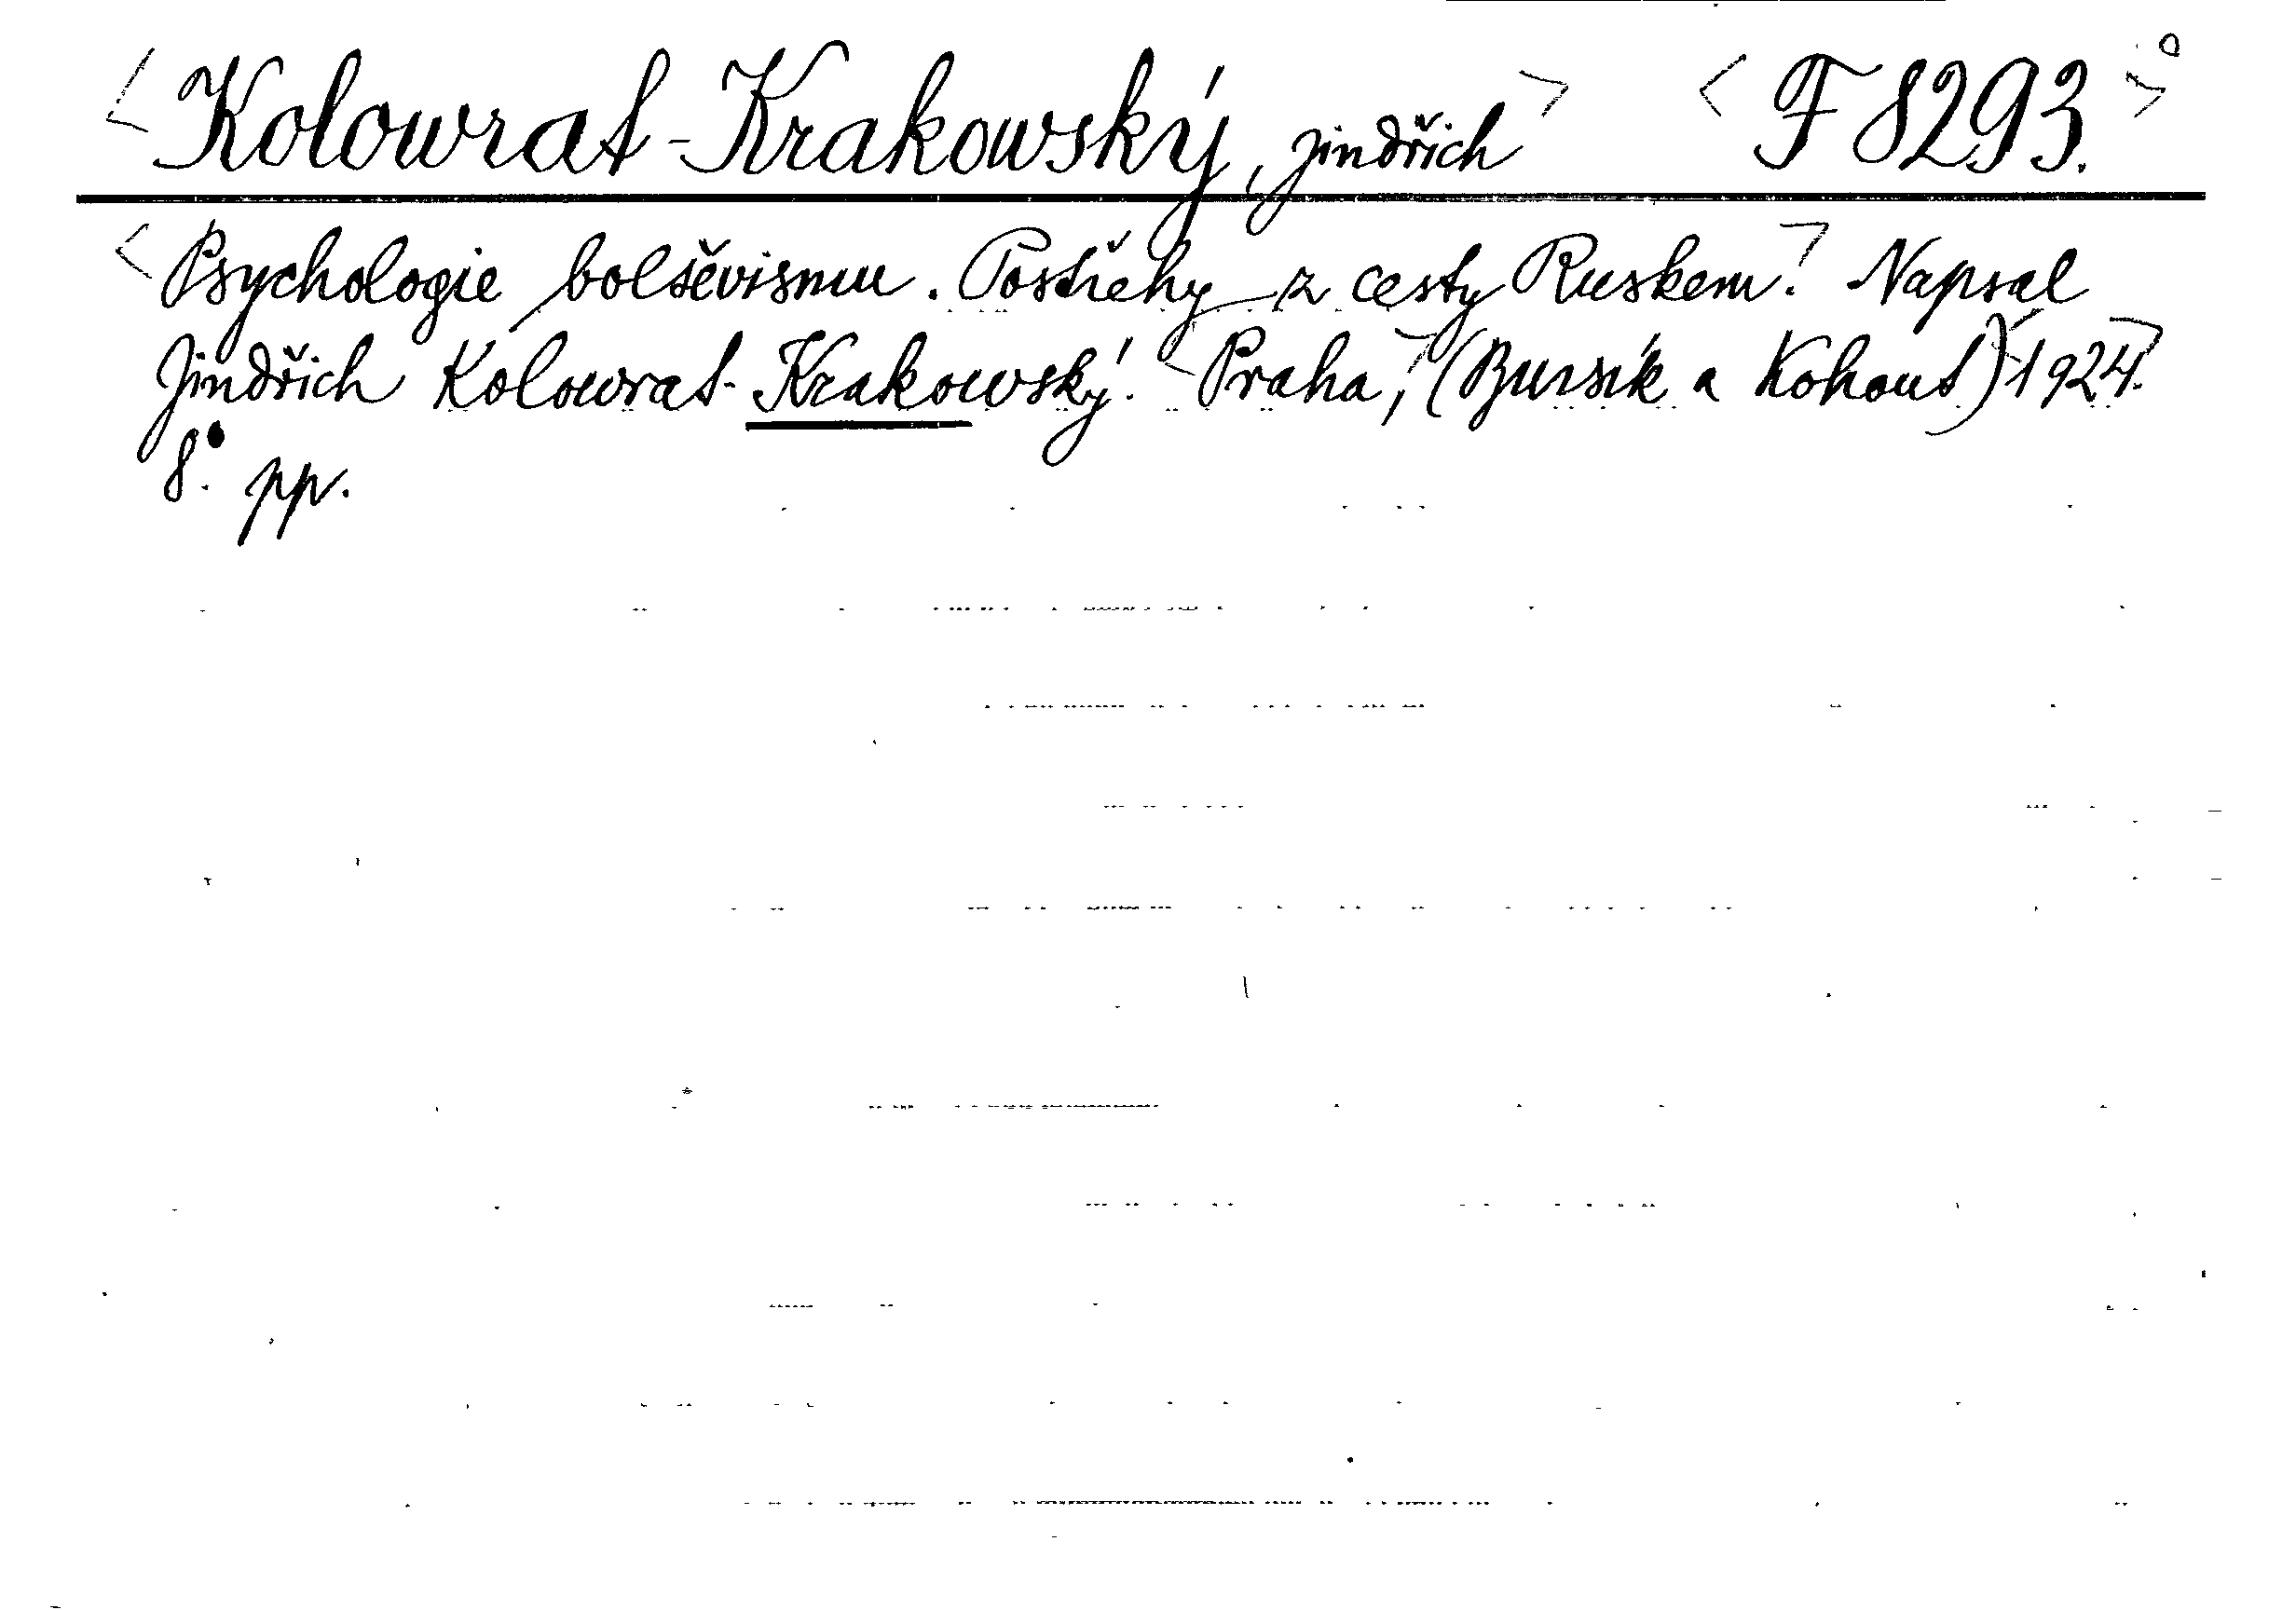 <Kolowrat-Krakowský, Jindřich> <F 8293.>
<Psychologie bolševismu. Postřehy z cesty Ruskem.> Napsal
Jindřich Kolowrat-Krakowský. <Praha,> (Bursík a Kohout) <1924.>
8° pp.